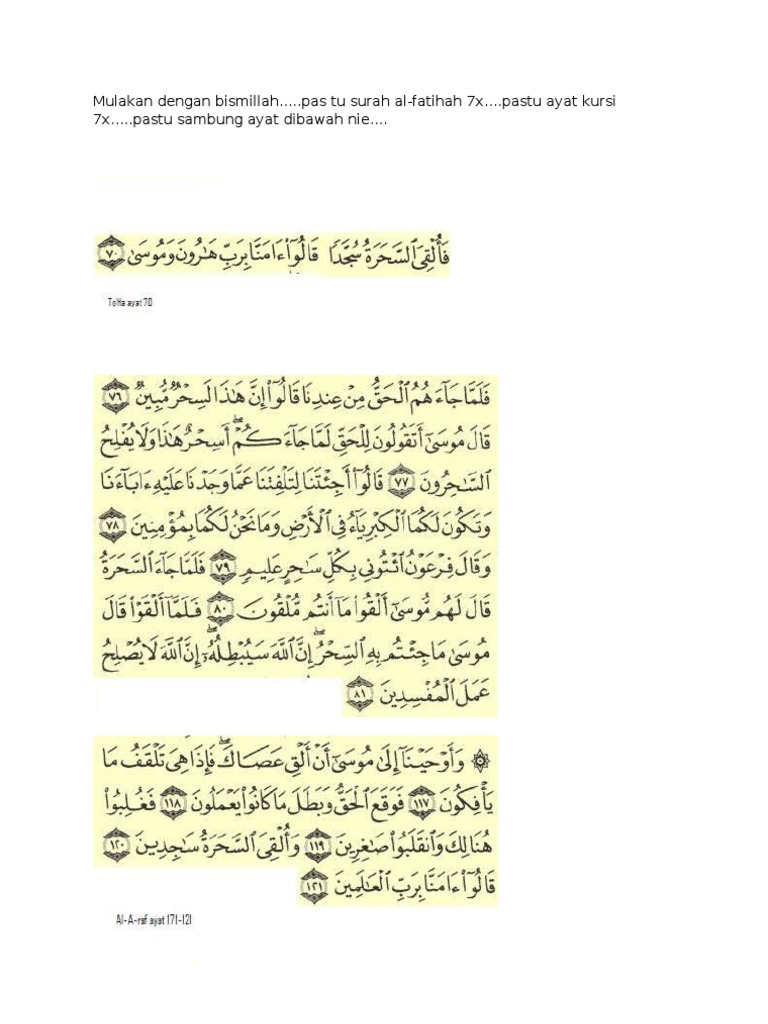 Mulakan dengan bismillah.....pas tu surah al-fatihah 7x....pastu ayat kursi
7x.....pastu sambung ayat dibawah nie....
فَأُلْقِىَ ٱلسَّحَرَةُ سُجَّدًا قَالُوٓا۟ ءَامَنَّا بِرَبِّ هَـٰرُونَ وَمُوسَىٰ ٧٠
ToHa ayat 70
فَلَمَّا جَآءَهُمُ ٱلْحَقُّ مِنْ عِندِنَا قَالُوٓا۟ إِنَّ هَـٰذَا لَسِحْرٌ مُّبِينٌ ٧٦
قَالَ مُوسَىٰٓ أَتَقُولُونَ لِلْحَقِّ لَمَّا جَآءَكُمْ ۖ أَسِحْرٌ هَـٰذَا وَلَا يُفْلِحُ
ٱلسَّـٰحِرُونَ ٧٧ قَالُوٓا۟ أَجِئْتَنَا لِتَلْفِتَنَا عَمَّا وَجَدْنَا عَلَيْهِ ءَابَآءَنَا
وَتَكُونَ لَكُمَا ٱلْكِبْرِيَآءُ فِى ٱلْأَرْضِ وَمَا نَحْنُ لَكُمَا بِمُؤْمِنِينَ ٧٨
وَقَالَ فِرْعَوْنُ ٱئْتُونِى بِكُلِّ سَـٰحِرٍ عَلِيمٍ ٧٩ فَلَمَّا جَآءَ ٱلسَّحَرَةُ
قَالَ لَهُم مُّوسَىٰٓ أَلْقُوا۟ مَآ أَنتُم مُّلْقُونَ ٨٠ فَلَمَّآ أَلْقَوْا۟ قَالَ
مُوسَىٰ مَا جِئْتُم بِهِ ٱلسِّحْرُ ۖ إِنَّ ٱللَّهَ سَيُبْطِلُهُۥٓ ۖ إِنَّ ٱللَّهَ لَا يُصْلِحُ
عَمَلَ ٱلْمُفْسِدِينَ ٨١
۞ وَأَوْحَيْنَآ إِلَىٰ مُوسَىٰٓ أَنْ أَلْقِ عَصَاكَ ۖ فَإِذَا هِىَ تَلْقَفُ مَا
يَأْفِكُونَ ١١٧ فَوَقَعَ ٱلْحَقُّ وَبَطَلَ مَا كَانُوا۟ يَعْمَلُونَ ١١٨ فَغُلِبُوا۟
هُنَالِكَ وَٱنقَلَبُوا۟ صَـٰغِرِينَ ١١٩ وَأُلْقِىَ ٱلسَّحَرَةُ سَـٰجِدِينَ ١٢٠
قَالُوٓا۟ ءَامَنَّا بِرَبِّ ٱلْعَـٰلَمِينَ ١٢١
Al-A-raf ayat 171-121